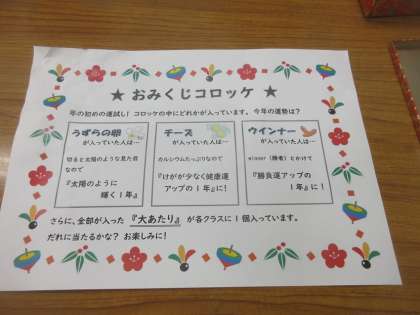 ★ おみくじコロッケ ★
年の初めの運試し! コロッケの中にどれかが入っています。今年の運勢は?
うずらの卵
が入っていた人は…
切ると太陽のような見た目
なので
『太陽のように
輝く1年』
チーズ
が入っていた人は…
カルシウムたっぷりなので
『けがが少なく健康運
アップの1年』に!
ウインナー
が入っていた人は…
winner(勝者)とかけて
『勝負運アップの
1年』に!
さらに、全部が入った 『大あたり』 が各クラスに1個入っています。
だれに当たるかな? お楽しみに!